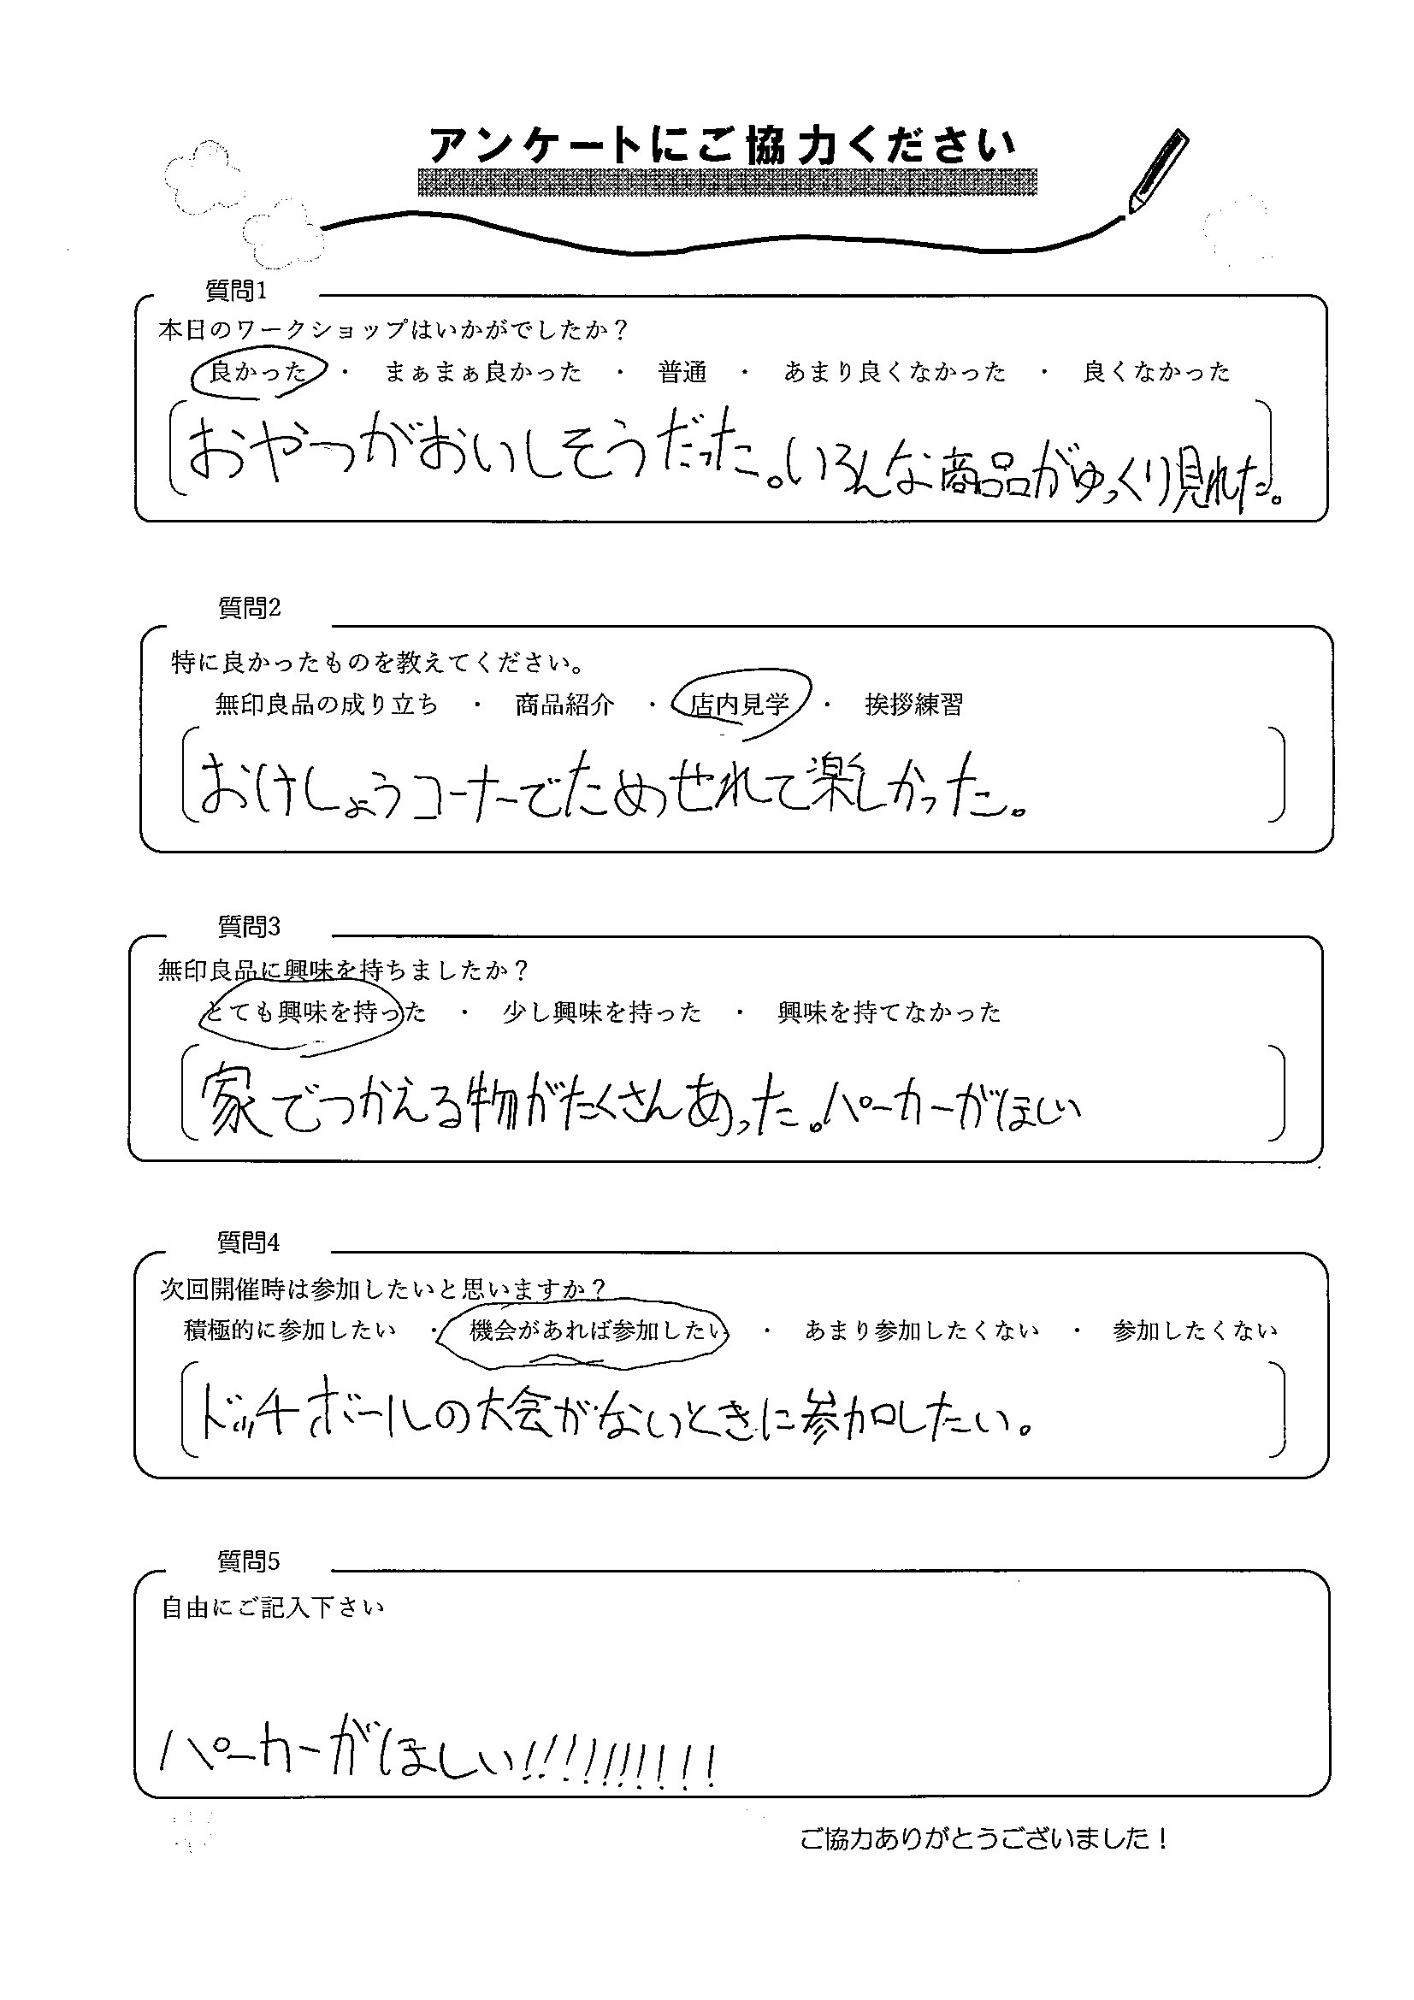 アンケートにご協力ください
質問1
本日のワークショップはいかがでしたか？
良かった ・ まぁまぁ良かった ・ 普通 ・ あまり良くなかった ・ 良くなかった
おやつがおいしそうだった。いろんな商品がゆっくり見れた。
質問2
特に良かったものを教えてください。
無印良品の成り立ち ・ 商品紹介 ・ 店内見学 ・ 挨拶練習
おけしょうコーナーでためせれて楽しかった。
質問3
無印良品に興味を持ちましたか？
とても興味を持った ・ 少し興味を持った ・ 興味を持てなかった
家でつかえる物がたくさんあった。パーカーがほしい
質問4
次回開催時は参加したいと思いますか？
積極的に参加したい ・ 機会があれば参加したい ・ あまり参加したくない ・ 参加したくない
ドッチボールの大会がないときに参加したい。
質問5
自由にご記入下さい
パーカーがほしい!!!!!!!!!!
ご協力ありがとうございました！